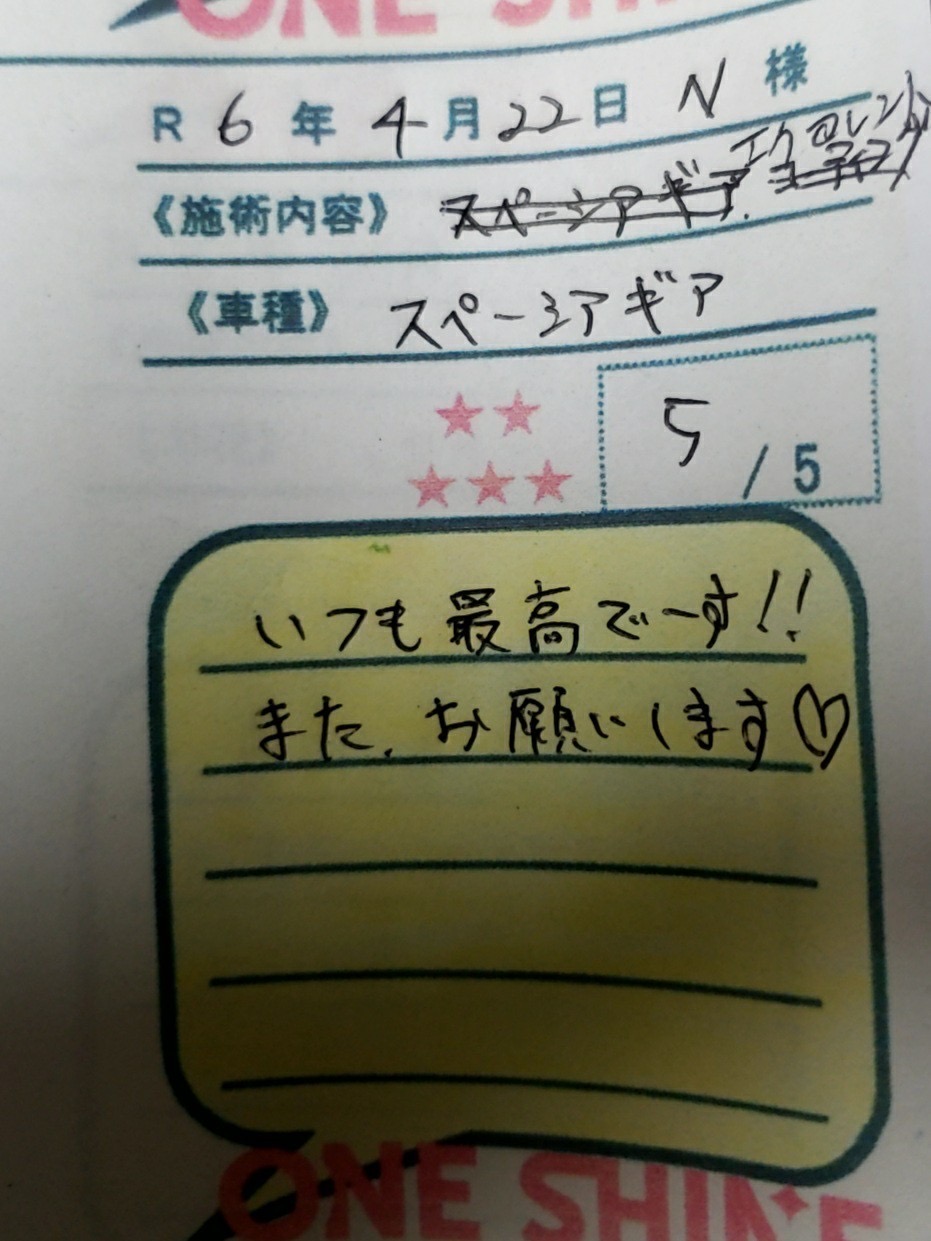 ONE SHINE
R 6年 4月22日 N 様
《施術内容》 スペーシアギア
《車種》 スペーシアギア
★★
★★★
5 / 5
いつも最高でーす!!
また、お願いします♡
ONE SHINE